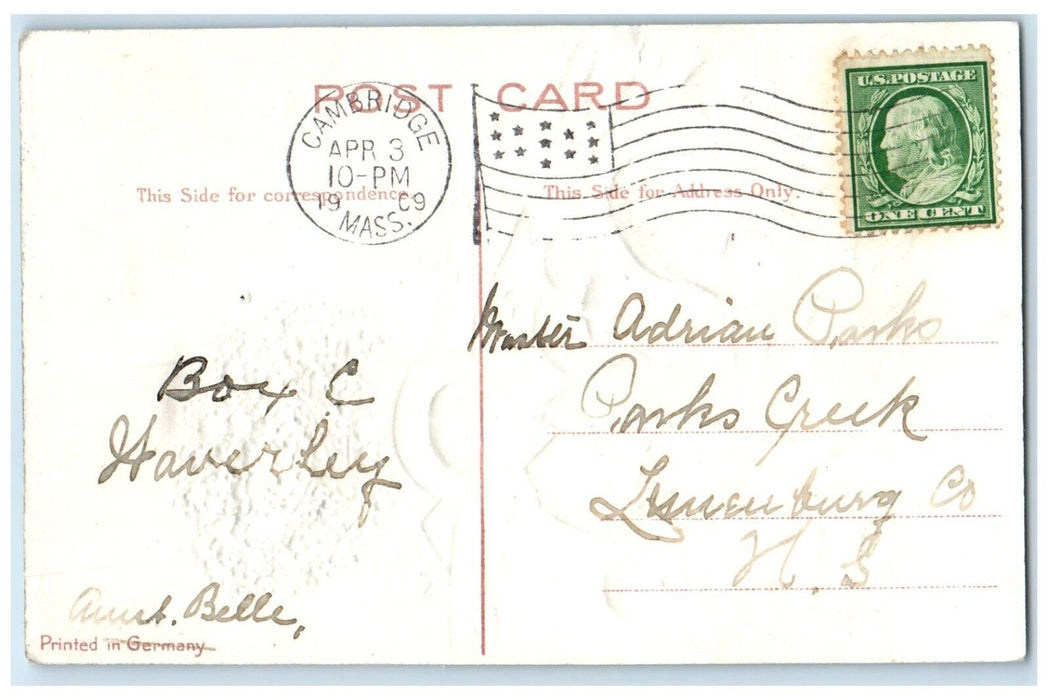 POST CARD
CAMBRIDGE
APR 3
10-PM
1909
MASS.
U.S. POSTAGE
ONE CENT
This Side for correspondence
This Side for Address Only.
Box C
Waverley
Aunt. Belle,
Printed in Germany
Master Adrian Parks
Parks Creek
Lunenburg Co
N. S